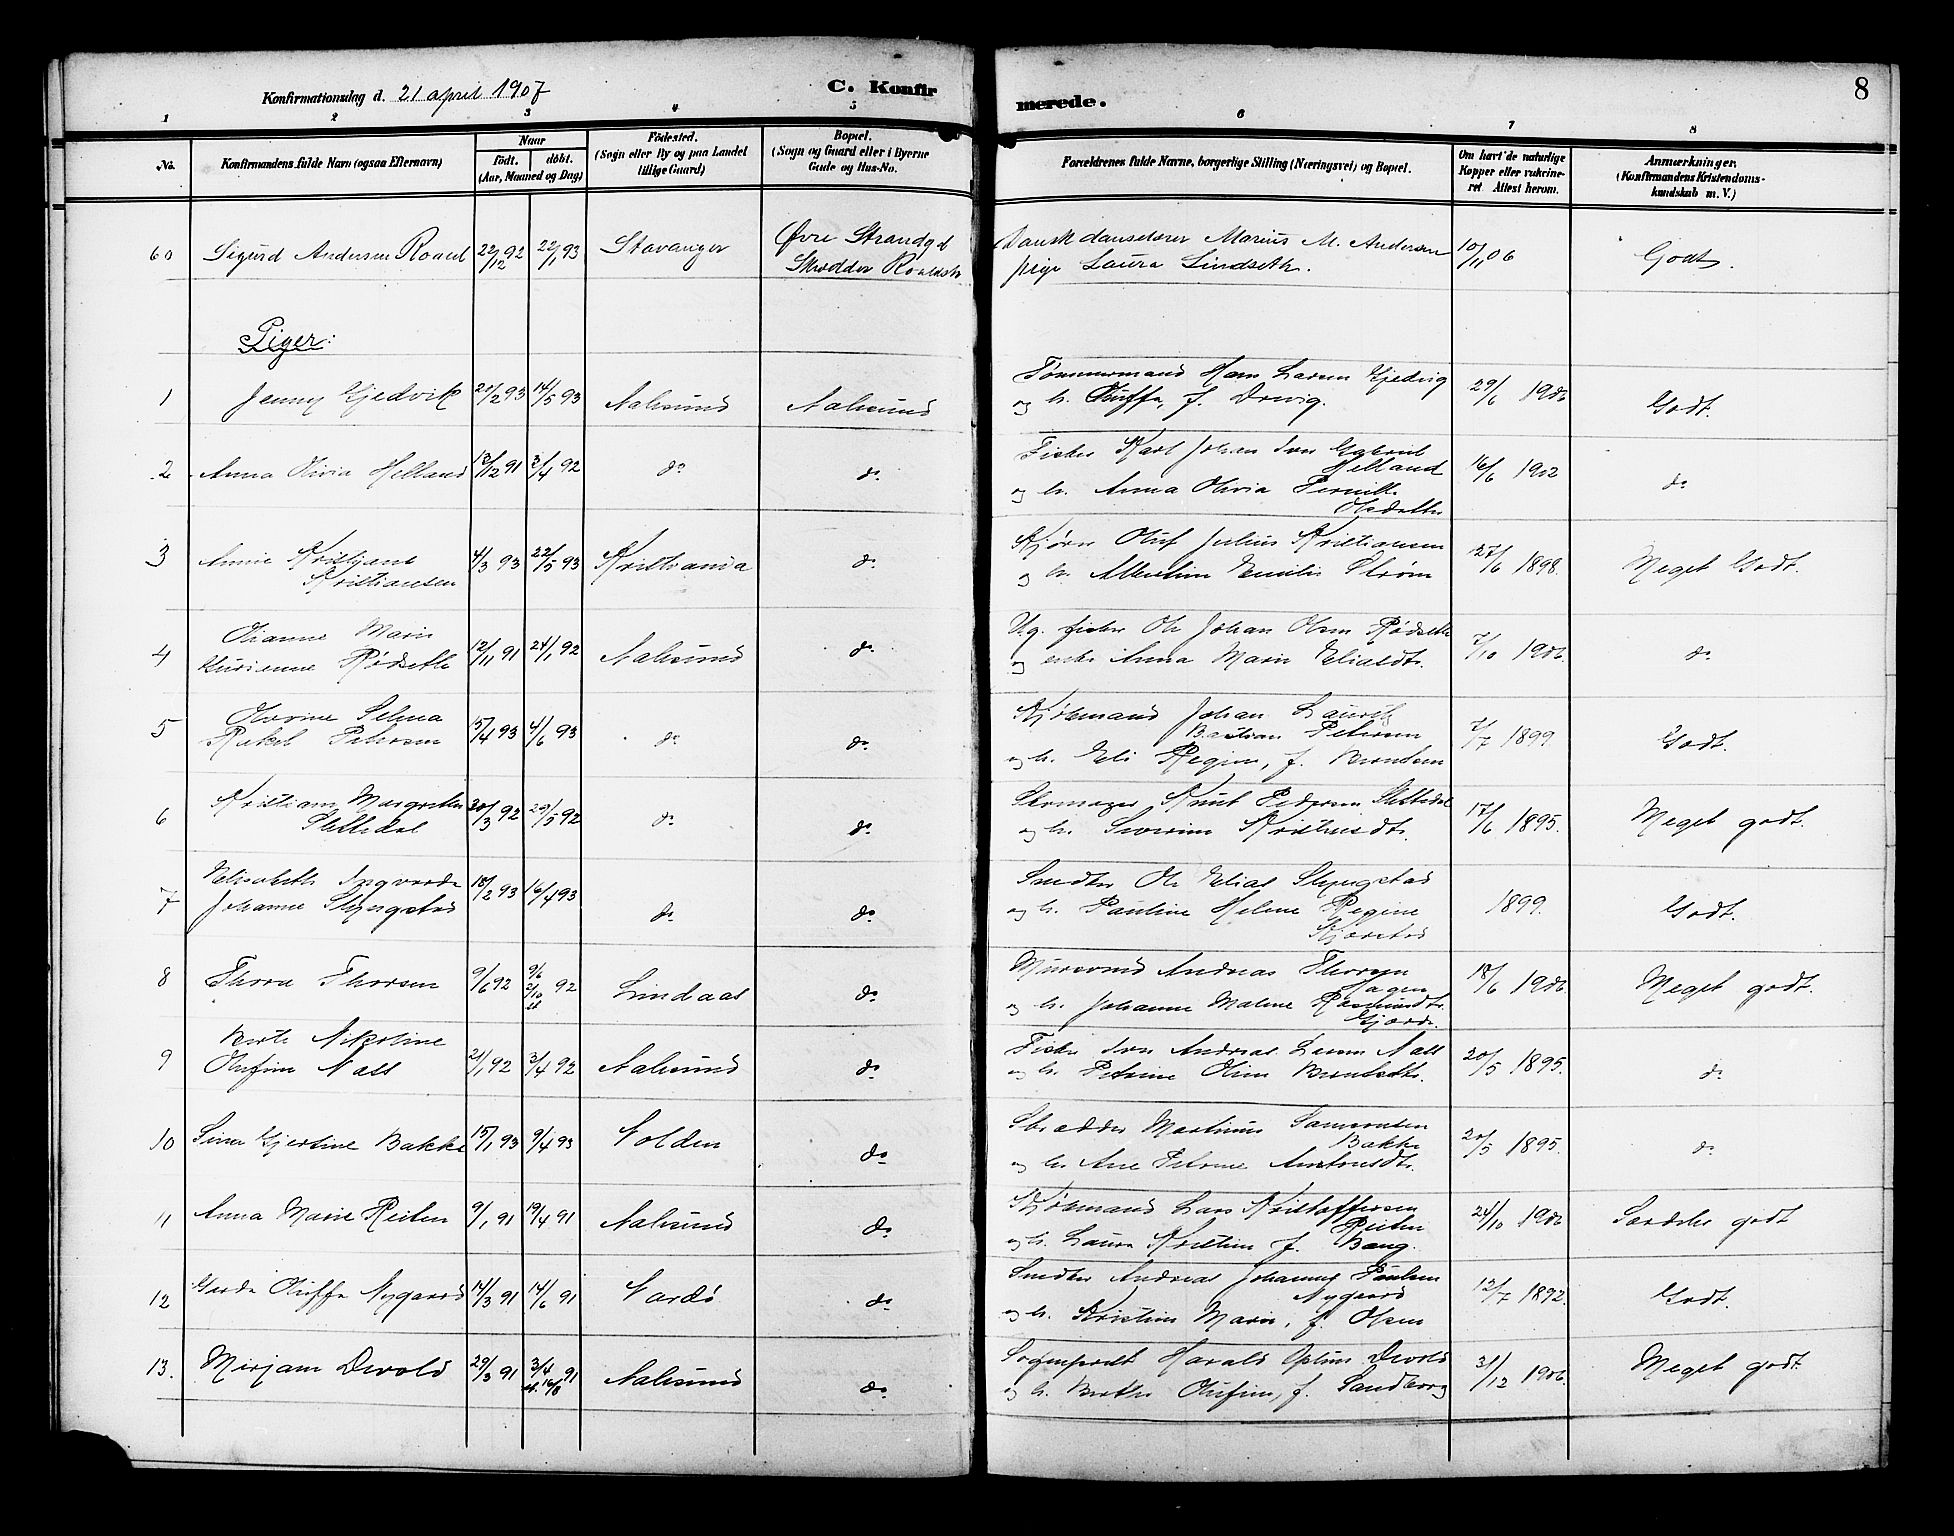 Konfirmationsdag d. 21 april 1907
C. Konfirmerede.
8
1 2 3 4 5 6 7 8
No.
Konfirmandens fulde Navn (ogsaa Efternavn)
Naar
født. døbt.
(Aar, Maaned og Dag)
Fødested.
(Sogn eller By og paa Landet
tillige Gaard)
Bopæl.
(Sogn og Gaard eller i Byerne
Gade og Hus-No.
Forældrenes fulde Navne, borgerlige Stilling (Næringsvei) og Bopæl.
Om havt de naturlige
Kopper eller vakcine-
ret Attest herom.
Anmærkninger.
(Konfirmandens Kristendoms-
kundskab m. V.)
60 Sigurd Andersen Roald 22/12 92 22/1 93 Stavanger Øvre Strandgd
Skrædder Roaldsth
Dansk danselærer Marius M. Andersen
pige Laura Lindseth. 10/11 06 Godt.
Piger:
1 Jenny Gjedvik 20/2 93 14/5 93 Aalesund Aalesund
Tømmermand Hans Larsen Gjedvig
og h. Oluffa, f. Drevig. 29/6 1906 Godt.
2 Anna Olivia Helland 13/12 91 3/4 92 do do
Fisker Karl Johan Iver Gabriel
Helland
og h. Anna Olivia Pernille
Olsdatter 16/6 1902 do
3 Annie Kristiane
Kristiansen 4/3 93 22/5 93 Kristiania do
Kjører Oluf Julius Kristiansen
og h. Albertine Emilie Strøm 27/6 1898. Meget Godt.
4 Olianne Marie
Gurianne Rødseth 12/11 91 24/1 92 Aalesund do
Ug. fisker Ole Johan Olsen Rødseth
og enke Anna Marie Eliasdtr. 7/10 1906. do
5 Olovine Selma
Rakel Petersen 15/4 93 4/6 93 do do
Kjøbmand Johan Lauritz
Bastian Petersen
og h. Eli Regine, f. Berntsen 7/7 1899 Godt.
6 Kristiane Margrethe
Slettedal 20/3 92 29/5 92 do do
Skomager Knut Pedersen Slettedal
og h. Severine Knutsdtr. 17/6 1895. Meget godt.
7 Elisabeth Ingvarda
Johanne Slyngstad 18/2 93 16/4 93 do do
Snedker Ole Elias Slyngstad
og h. Pauline Helene Regine
Kjærstad 1899. Godt.
8 Thora Thorsen 9/6 92 9/6 2/10 92 Lindaas do
Murmand Andreas Thorsen
Hagen
og h. Johanne Malene Rasmusdtr.
Gjærde. 18/6 1906 Meget godt.
9 Berte Nikoline
Olufine Nall 21/1 92 3/4 92 Aalesund do
Fisker Iver Andreas Larsen Nall
og h. Petrine Oline Berntsdtr. 20/5 1895. do
10 Sina Gjertine Bakke 15/1 93 9/4 93 Volden do
Skrædder Martinus Samuelsen
Bakke
og h. Ane Petrine Antonsdtr. 20/5 1895. do
11 Anna Marie Reiten 9/1 91 19/4 91 Aalesund do
Kjøbmand Lars Kristoffersen
Reiten
og h. Laura Kristine f. Bang. 24/10 1906 Særdeles godt
12 Gerda Oluffa Nygaard 14/3 91 14/6 91 Vardö do
Snedker Andreas Johannes Paulsen
Nygaard
og h. Kristine Marie, f. Olsen 12/7 1892. Godt.
13. Mirjam Devold 29/3 91 3/4 st. 16/8 91 Aalesund do
Sogneprest Harald Optus Devold
og h. Berthe Olufine, f. Sandborg 31/12 1906. Meget godt